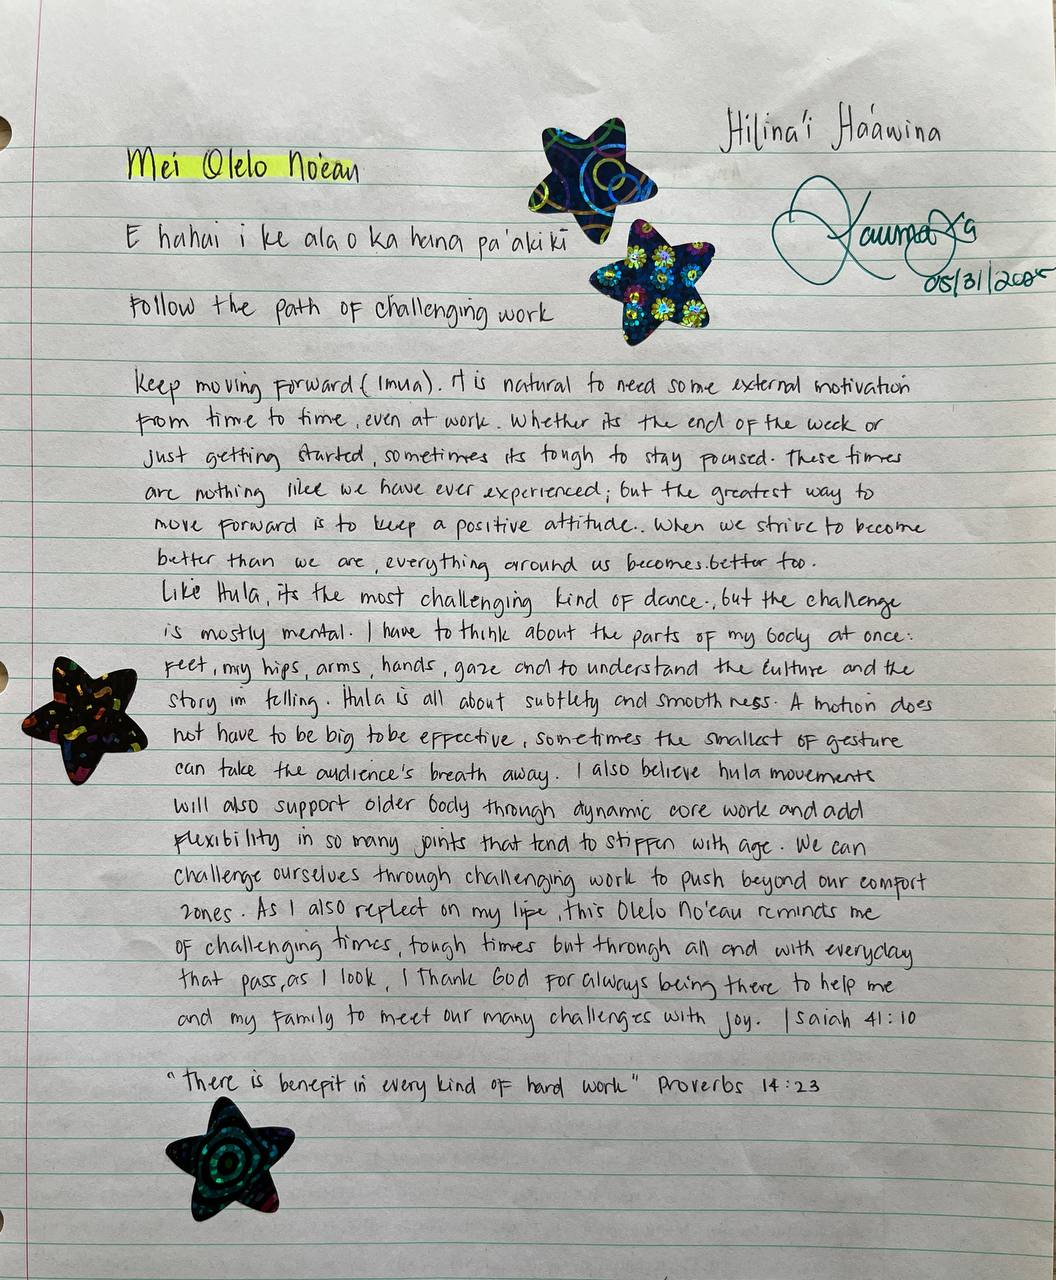 Hilina'i Ha'awina
Mei Olelo No'eau
05/31/2025
E hahai i ke ala o ka hana pa'akikī
Follow the path of challenging work
Keep moving forward (Imua). It is natural to need some external motivation
from time to time, even at work. Whether its the end of the week or
just getting started, sometimes its tough to stay focused. These times
are nothing like we have ever experienced; but the greatest way to
move forward is to keep a positive attitude.. When we strive to become
better than we are, everything around us becomes.better too.
Like Hula, its the most challenging kind of dance., but the challenge
is mostly mental. I have to think about the parts of my body at once:
feet, my hips, arms, hands, gaze and to understand the culture and the
story im telling. Hula is all about subtlety and smoothness. A motion does
not have to be big to be effective, sometimes the smallest of gesture
can take the audience's breath away. I also believe hula movements
will also support older body through dynamic core work and add
flexibility in so many joints that tend to stiffen with age. We can
challenge ourselves through challenging work to push beyond our comfort
zones. As I also reflect on my life, this Olelo No'eau reminds me
of challenging times, tough times but through all and with everyday
that pass, as I look, I thank God for always being there to help me
and my family to meet our many challenges with joy. Isaiah 41:10
"There is benefit in every kind of hard work" Proverbs 14:23